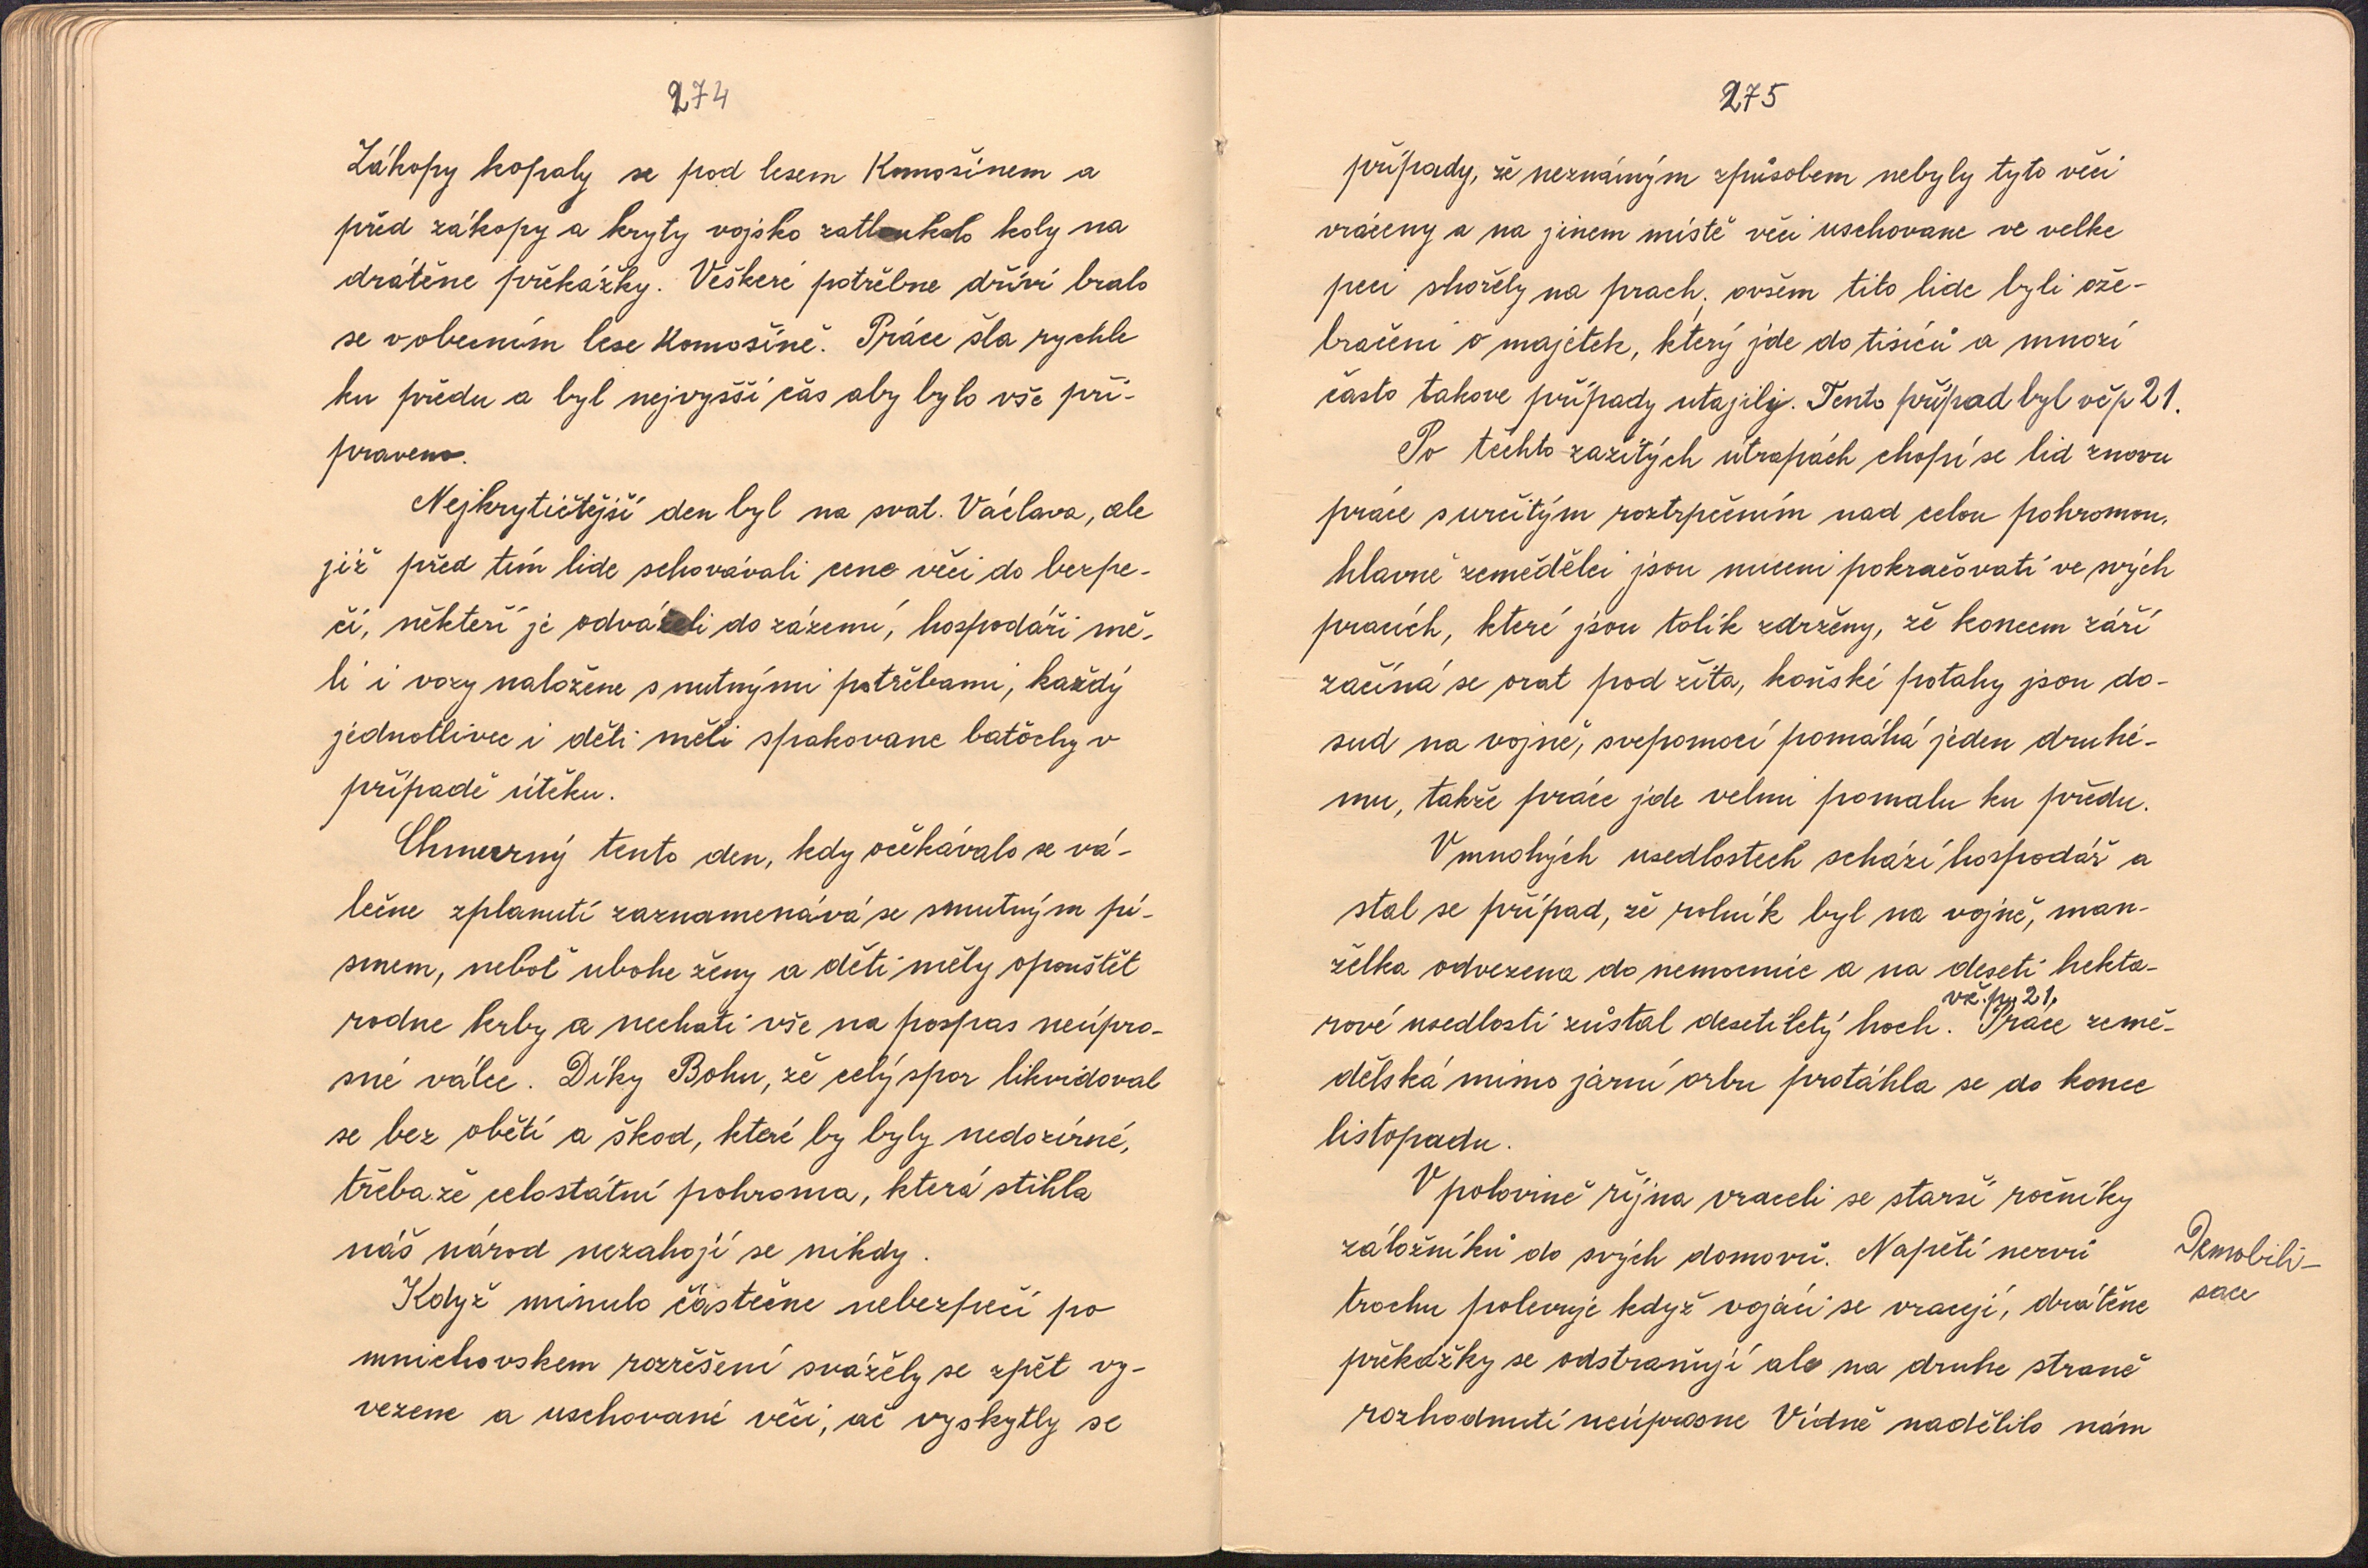 274
Zákopy kopaly se pod lesem Komošínem a
před zákopy a kryty vojsko zatloukalo koly na
drátěne překážky. Veškeré potřebne dříví bralo
se v obecním lese Komošíně. Práce šla rychle
ku předu a byl nejvyšší čas aby bylo vše při-
praveno.
Nejkrytičtější den byl na svat. Václava, ale
již před tím lide schovávali cene věci do bezpe-
čí, někteří je odváželi do zázemí, hospodáři mě-
li i vozy naložene s nutnými potřebami, každý
jednotlivec i děti měli spakovane batochy v
případě útěku.
Chmurný tento den, kdy očekávalo se vá-
lečne zplanutí zaznamenává se smutným pí-
smem, neboť ubohe ženy a děti měly opouštět
rodne krby a nechati vše na pospas neúpro-
sné válce. Díky Bohu, že celý spor likvidoval
se bez obětí a škod, které by byly nedozírné,
třebaže celostátní pohroma, která stihla
náš národ nezahojí se nikdy.
Když minulo částečne nebezpečí po
mnichovskem rozřešení svážely se zpět vy-
vezene a uschované věci, ač vyskytly se
275
případy, že neznámým způsobem nebyly tyto věci
vráceny a na jinem místě věci uschovane ve velke
peci shořely na prach, ovšem tito lide byli ože-
bračeni o majetek, který jde do tisíců a mnozí
často takove případy utajily. Tento případ byl v čp 21.
Po těchto zažitých útrapách chopí se lid znovu
práce s určitým roztrpčením nad celou pohromou,
hlavně zemědělci jsou nuceni pokračovati ve svých
pracích, které jsou tolik zdrženy, že koncem září
začíná se orat pod žita, koňské potahy jsou do-
sud na vojně, svepomocí pomáhá jeden druhé-
mu, takže práce jde velmi pomalu ku předu.
V mnohých usedlostech schází hospodář a
stal se případ, že rolník byl na vojně, man-
želka odvezena do nemocnice a na deseti hekta-
vč. p. 21.
rové usedlosti zůstal desetiletý hoch. Práce země-
dělská mimo jarní orbu protáhla se do konce
listopadu.
V polovině října vraceli se starší ročníky
záložníků do svých domovů. Napětí nervů
trochu polevuje když vojáci se vracejí, drátěne
překážky se odstraňují ale na druhe straně
rozhodnutí neúprosne Vídně nadělilo nám
Demobili-
sace